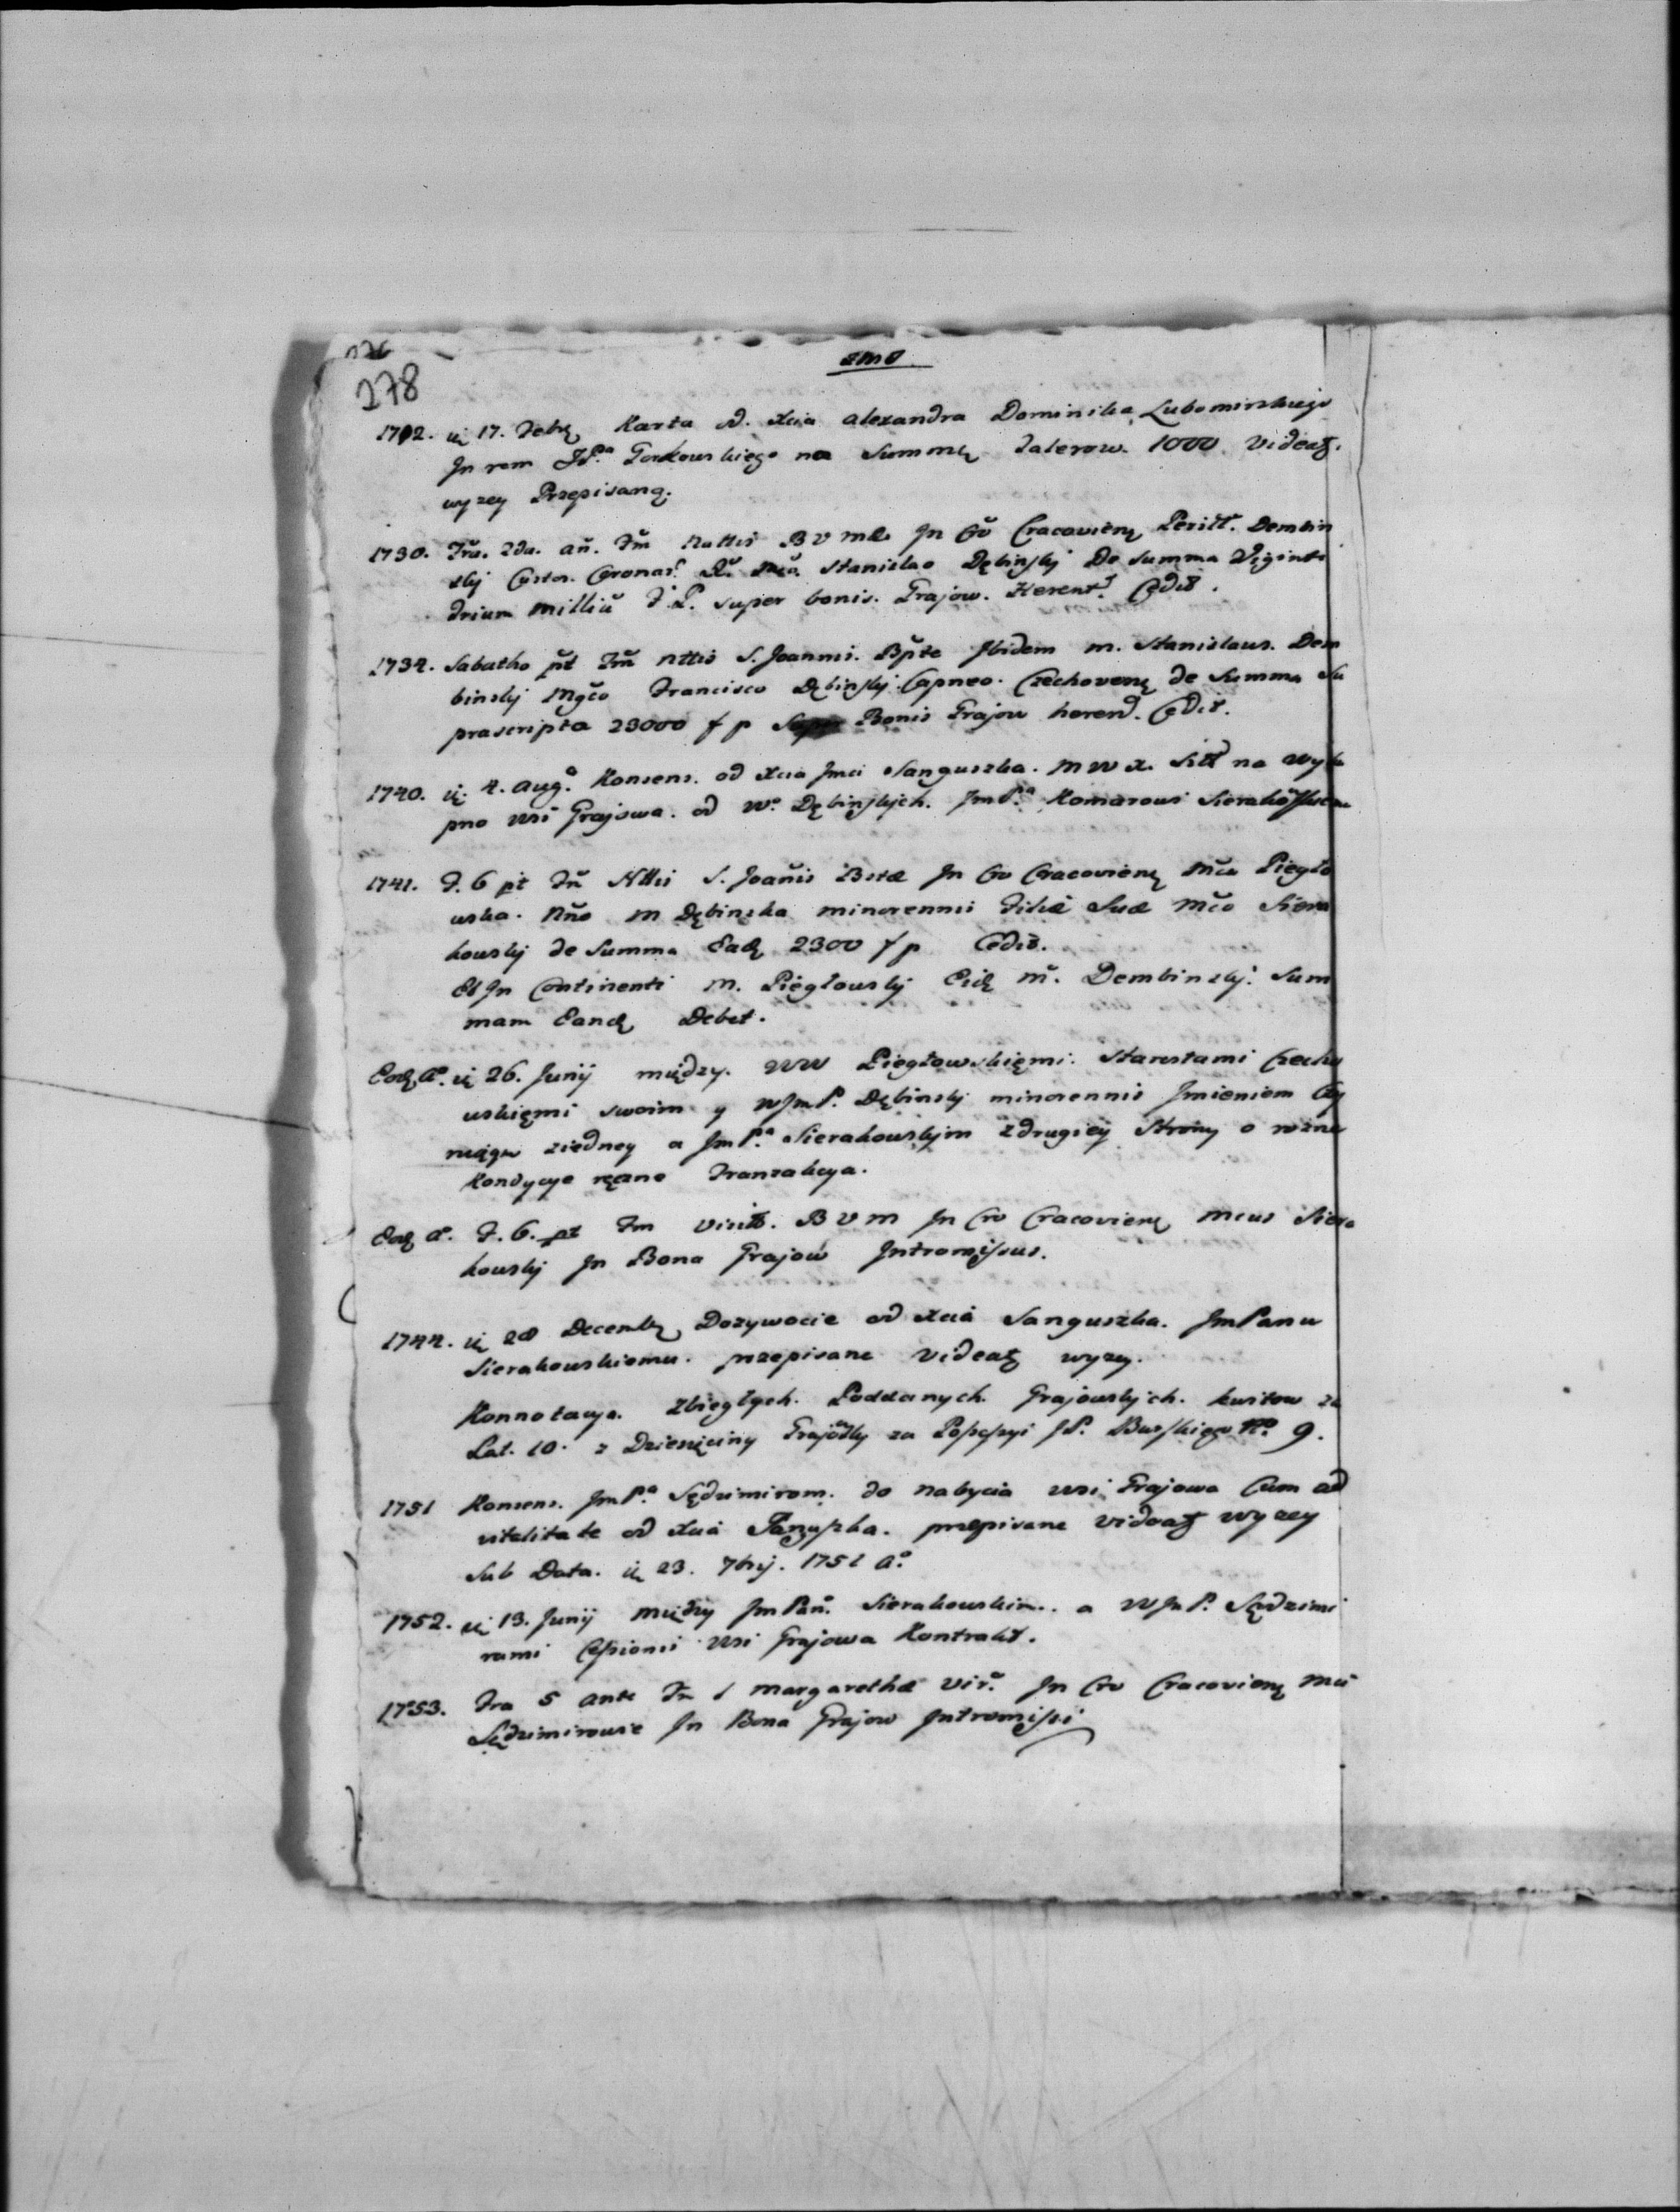 278
2mo
1702. ij 17. Febr Karta od. Xcia Alexandra Dominika Lubomirskiego
In rem JP.a Gorkowskiego na Summę talerow. 1000. videatz.
wyzey Przepisaną.
1730. Fra. 2da. an. Fm Nattis B V Mæ In Cv Cracovien Dembin
skij Custos. Coronar. Stanislao Dębinskij De Summa Viginti
trium milliu f. P. super bonis. Grajow. Herent. Cedit.
1734. Sabatho pt Fm nttis S. Joannis. Bptæ Ibidem M. Stanislaus. Dem
binskij Mgco Francisco Dębinskij Capneo. Czechovens de Summa Su
prascripta 23000 f p Bonis Grajow herend. Cedit.
1740. ij. 4. Aug. Konsens. od Xcia Jmci Sanguszka. M W X. Litt na wyku
pno wsi Grajowa. od W. Dębinskich. JmP.a Komarowi
1741. F. 6 pt Fn Nttis S. Joanis Btæ In Cv Cracovien Mca Piegło
wska. Nno M Dębinska minorennis Filiæ Suæ Mco Siera
kowskij de Summa Eadz 2300 f p Cedit.
Et In Continenti M. Piegłowskij Eidz M. Dembinskij. Sum
mam Eandz Debet.
Eodz A. ij 26. Junij między. WW Piegłowskiemi. Starostami Czecho
wskiemi swoim y WJmP. Dębinskij minorennis Imieniem Czy
niącym ziedney a JmP.a Sierakowskim zdrugiey Strony o rozne
Kondycye ręczne Tranzakcya.
Eodz A. F. 6. pt Fm Visitt. B V M In Cv Cracovien Mcus Siera
kowskij In Bona Grajow Intromissus.
1744. ij 28 Decembr Dozywocie od Xcia Sanguszka. JmPanu
Sierakowskiemu. przepisane videatz wyzey.
Konnotacya. Zbiegłych. Poddanych. Grajowskich. kwitow za
Lat. 10. z Dziesięciny Grajowsky za Possessyi JP. Burskiego No. 9.
1751 Konsens. JmP.a Sędzimirom. do nabycia wsi Grajowa Cum ad
vitalitate od Xcia Sanguszka. przepisane videatz wyzey
Sub Data. ij 23. 7brij. 1751 A.
1752. ij 13. Junij między JmPan. Sierakowskim. a WJmP. Sędzimi
rami Cessionis wsi Grajowa Kontrakt.
1753. Fra 5 ante Fm S Margarethæ Vir. In Cv Cracovien Mci
Sędzimirowie In Bona Grajow Intromissi